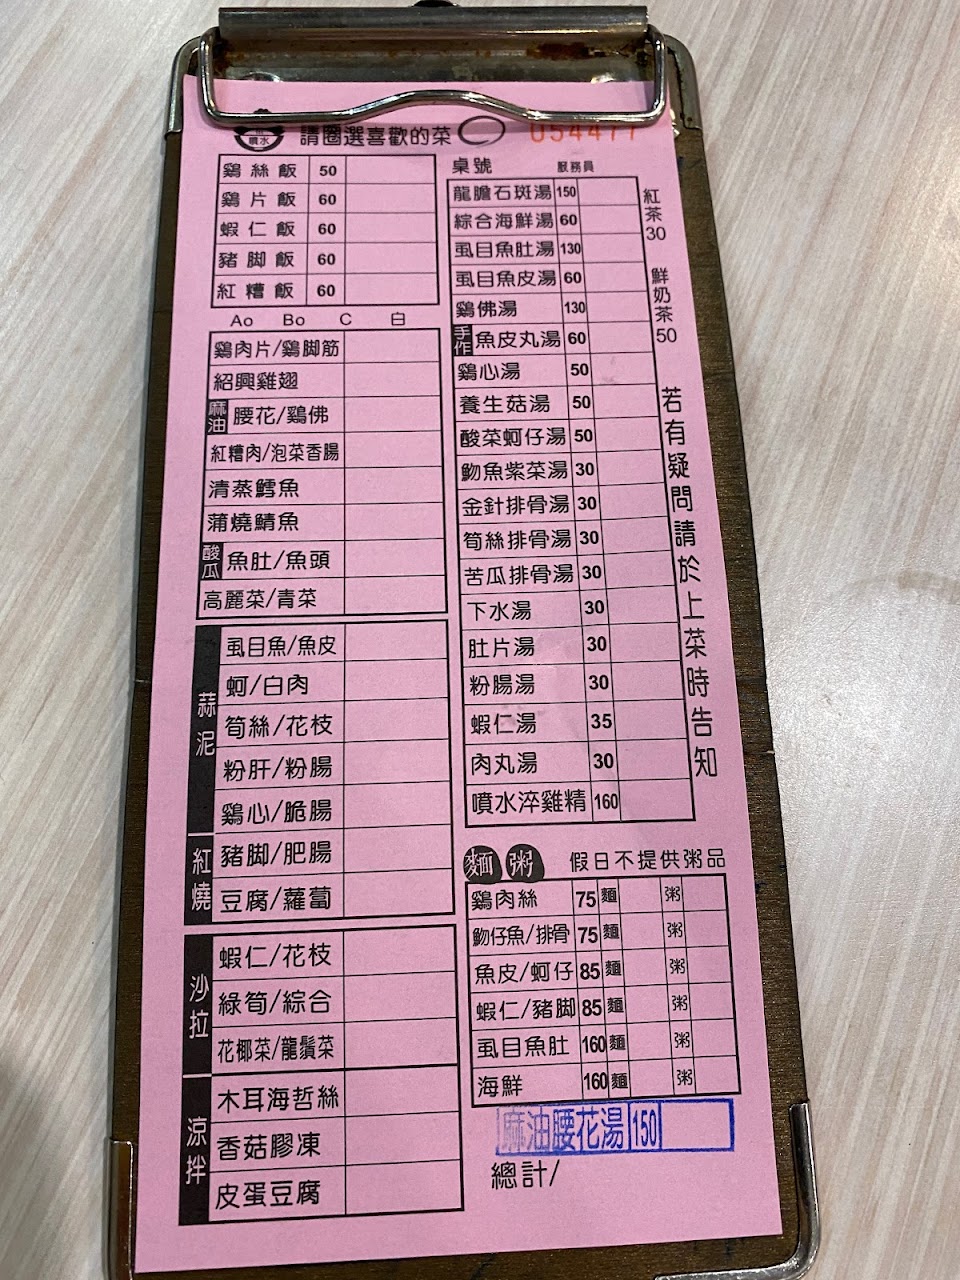 噴水
請圈選喜歡的菜
054477
鷄絲飯 50
鷄片飯 60
蝦仁飯 60
豬脚飯 60
紅糟飯 60
Ao Bo C 白
鷄肉片/鷄脚筋
紹興雞翅
麻油 腰花/鷄佛
紅糟肉/泡菜香腸
清蒸鱈魚
蒲燒鯖魚
酸瓜 魚肚/魚頭
高麗菜/青菜
蒜泥
虱目魚/魚皮
蚵/白肉
筍絲/花枝
粉肝/粉腸
鷄心/脆腸
紅燒
豬脚/肥腸
豆腐/蘿蔔
沙拉
蝦仁/花枝
綠筍/綜合
花椰菜/龍鬚菜
涼拌
木耳海哲絲
香菇膠凍
皮蛋豆腐
桌號 服務員
龍膽石斑湯 150
綜合海鮮湯 60
虱目魚肚湯 130
虱目魚皮湯 60
鷄佛湯 130
手作 魚皮丸湯 60
鷄心湯 50
養生菇湯 50
酸菜蚵仔湯 50
魩魚紫菜湯 30
金針排骨湯 30
筍絲排骨湯 30
苦瓜排骨湯 30
下水湯 30
肚片湯 30
粉腸湯 30
蝦仁湯 35
肉丸湯 30
噴水淬雞精 160
紅茶30
鮮奶茶50
若有疑問請於上菜時告知
麵 粥 假日不提供粥品
鷄肉絲 75 麵 粥
魩仔魚/排骨 75 麵 粥
魚皮/蚵仔 85 麵 粥
蝦仁/豬脚 85 麵 粥
虱目魚肚 160 麵 粥
海鮮 160 麵 粥
麻油腰花湯 150
總計/